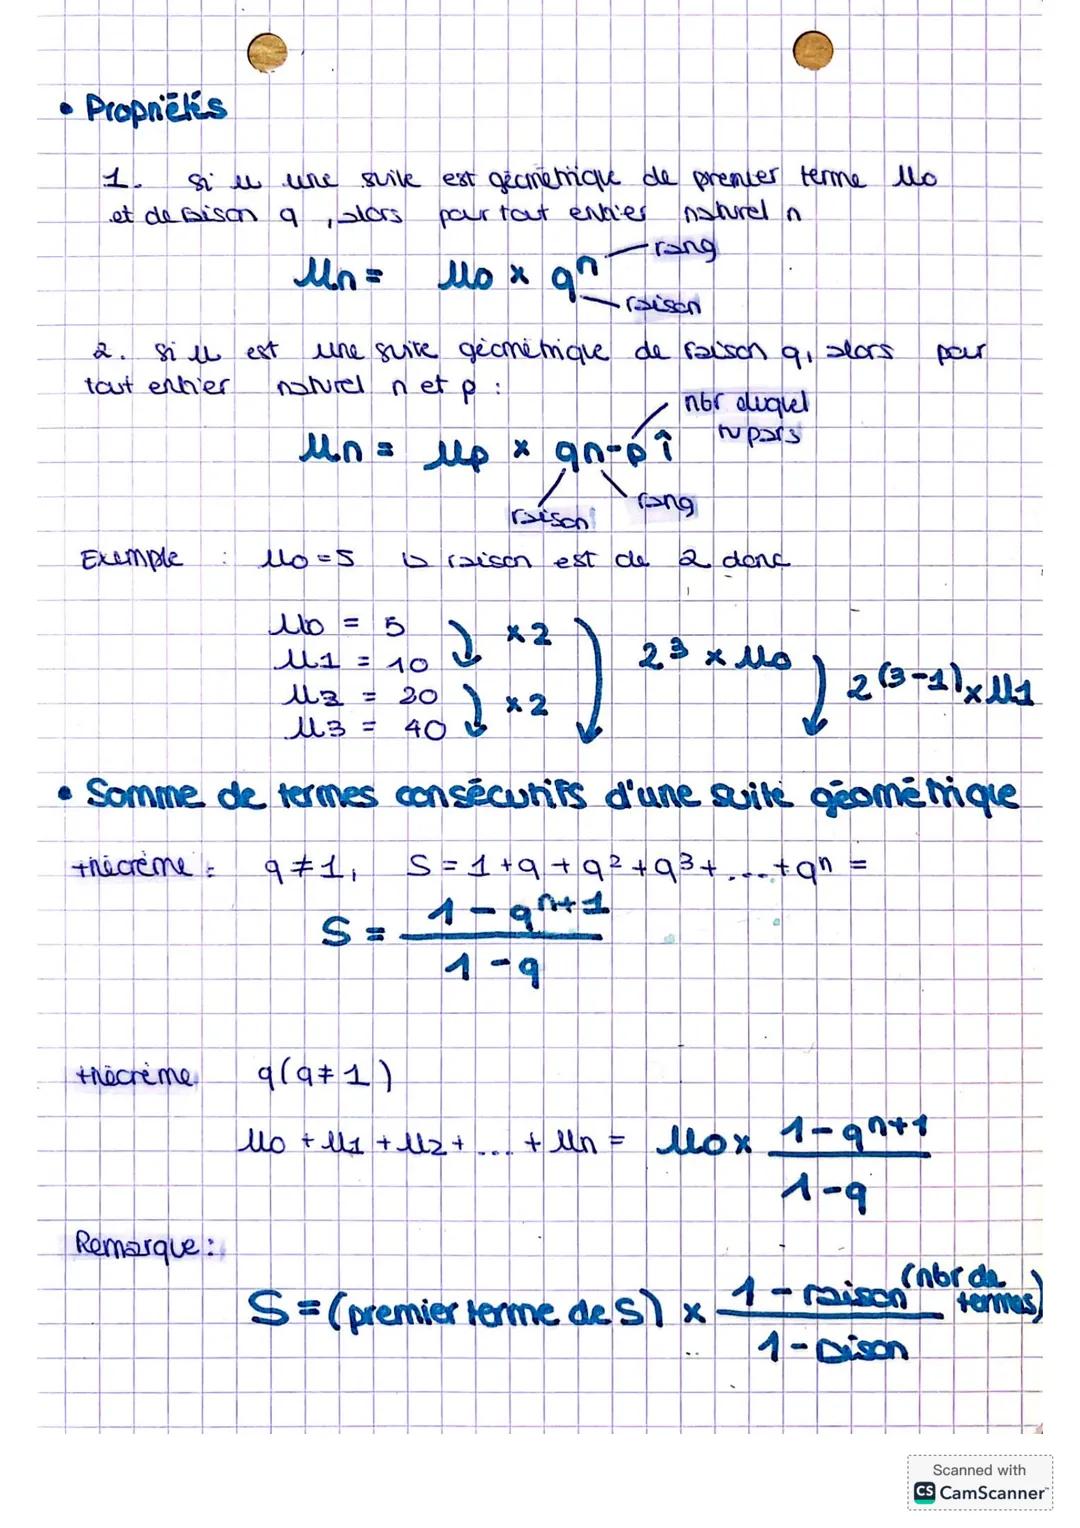 • Propriétés
1. si u une suite est géométrique de premier terme u0
et de raison q, alors pour tout entier naturel n
un = u0 × qⁿ
rang
raison
2. si u est une suite géométrique de raison q, alors pour
tout entier naturel n et p :
nbr duquel
tu pars
un = up × qn-p
raison
rang
Exemple : u0 = 5 la raison est de 2 donc
u0 = 5
u1 = 10
u2 = 20
u3 = 40
×2
×2
2³ × u0
2(3-1) × u1
• Somme de termes consécutifs d'une suite géométrique
théorème : q ≠ 1, S = 1 + q + q² + q³ + .... + qⁿ =
S = 1 - qⁿ⁺¹
1 - q
théorème q (q ≠ 1)
u0 + u1 + u2 + ... + un = u0 × 1 - qⁿ⁺¹
1 - q
Remarque :
S = (premier terme de S) × 1 - raison (nbr de
termes)
1 - raison
Scanned with
CS CamScanner